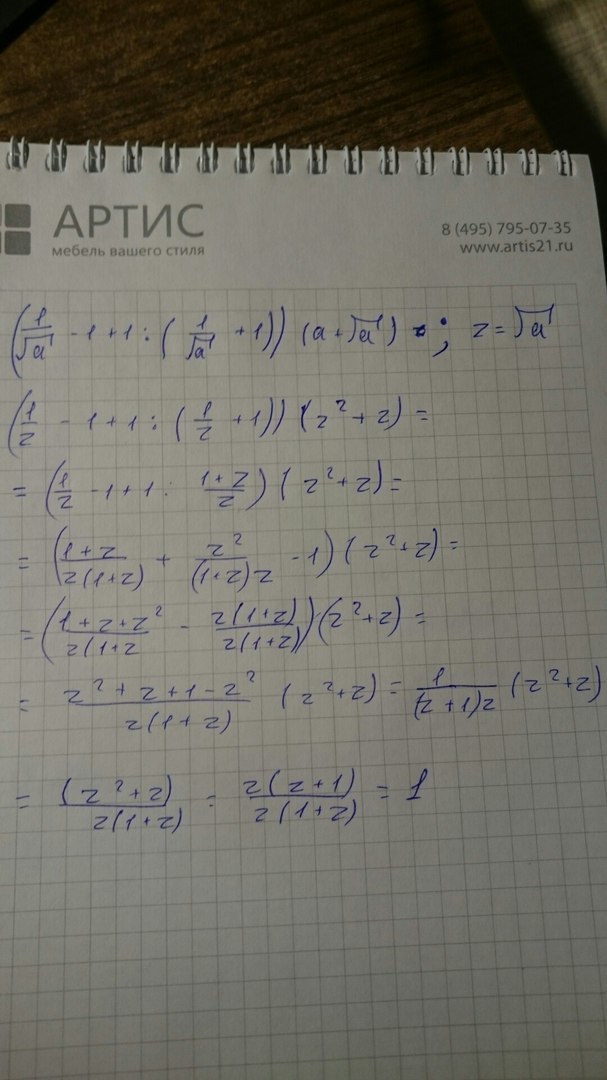 АРТИС
мебель вашего стиля
8 (495) 795-07-35
www.artis21.ru
(1/√a - 1 + 1 : (1/√a + 1)) (a + √a) ; z = √a
(1/z - 1 + 1 : (1/z + 1)) (z² + z) =
= (1/z - 1 + 1 : (1+z)/z) (z² + z) =
= ((1+z)/(z(1+z)) + z²/((1+z)z) - 1) (z² + z) =
= ((1+z+z²)/(z(1+z) - (z(1+z))/(z(1+z))) (z² + z) =
= (z² + z + 1 - z²)/(z(1+z)) (z² + z) = 1/((z+1)z) (z² + z)
= (z² + z)/(z(1+z)) = (z(z+1))/(z(1+z)) = 1